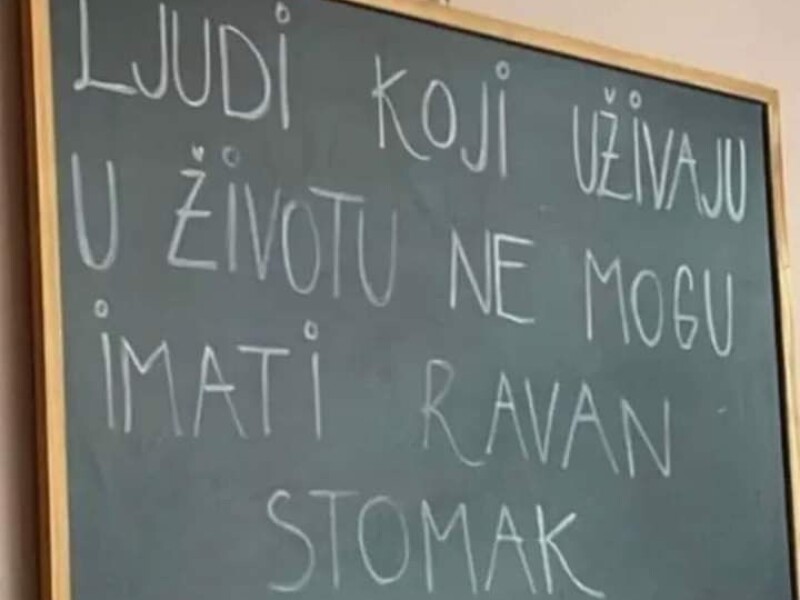 LJUDI KOJI UŽIVAJU
U ŽIVOTU NE MOGU
IMATI RAVAN
STOMAK